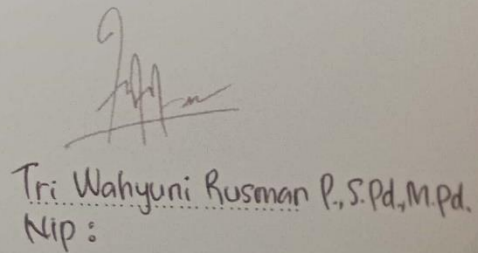 Tri Wahyuni Rusman P., S.Pd., M.Pd.
Nip :